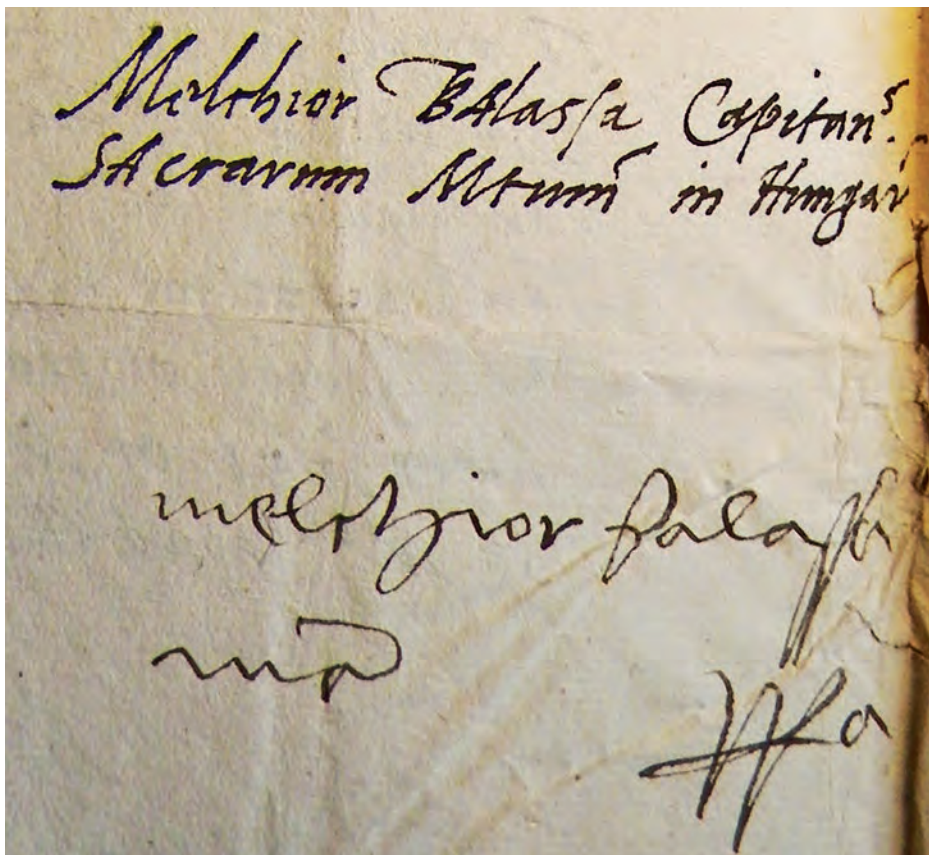 Melchior Balassa Capitan⁹.
Sacrarum Mtum̄ in Hungar
melchior balassa
mp̄
ssa